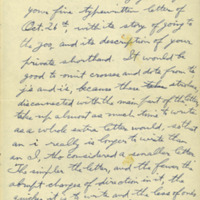 your fine typewritten letter of
Oct. 26th, with its story of going to
the zoo, and its description of your
private shorthand. It would be
good to omit crosses and dots from t's
j's and i's, because these strokes,
disconnected with the main part of the letter,
take up almost as much time to write
as a whole extra letter would, so that
an i really is longer to write than
an l, tho considered a smaller letter.
The simpler the letter, and the fewer the
abrupt changes of direction in it, the
quicker it is to write and the less of ones